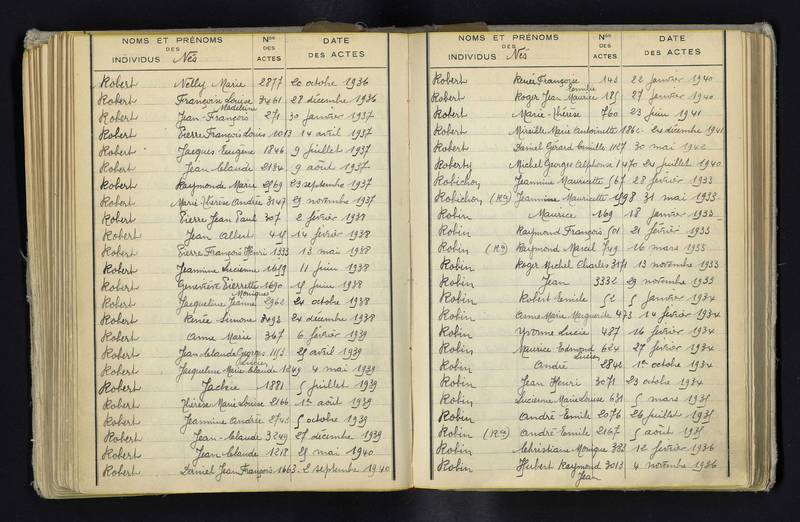 NOMS ET PRÉNOMS
DES
INDIVIDUS Nés
Nos
DES
ACTES
DATE
DES ACTES
Robert Nelly Marie 2877 20 octobre 1936
Robert Françoise Louise Madeleine 3461 28 décembre 1936
Robert Jean-François 271 30 janvier 1937
Robert Pierre François Louis 1013 14 avril 1937
Robert Jacques Eugène 1846 9 juillet 1937
Robert Jean Claude 2134 9 août 1937
Robert Raymonde Marie 2569 23 septembre 1937
Robert Marie Thérèse Andrée 3147 29 novembre 1937
Robert Pierre Jean Paul 307 2 février 1938
Robert Jean Albert 14 février 1938
Robert Pierre François Henri 1333 13 mai 1938
Robert Jeannine Lucienne 1659 11 juin 1938
Robert Geneviève Pierrette Monique 1690 15 juin 1938
Robert Jacqueline Jeanne 2962 24 octobre 1938
Robert Renée Simone 3493 24 décembre 1938
Robert Anne Marie 367 6 février 1939
Robert Jean Claude Georges Lucien 1153 25 avril 1939
Robert Jacqueline Marie Claude 1249 4 mai 1939
Robert Jackie 1881 5 juillet 1939
Robert Thérèse Marie Louise 2166 1er août 1939
Robert Jeannine Andrée 2745 5 octobre 1939
Robert Jean-Claude 3249 27 décembre 1939
Robert Jean Claude 1218 25 mai 1940
Robert Daniel Jean François 1663 2 septembre 1940
NOMS ET PRÉNOMS
DES
INDIVIDUS Nés
Nos
DES
ACTES
DATE
DES ACTES
Robert Renée Françoise 143 22 janvier 1940
Robert Roger Jean Maurice Camille 185 27 janvier 1940
Robert Marie-Thérèse 760 23 juin 1941
Robert Mireille Marie Antoinette 1862 24 décembre 1941
Robert Daniel Gérard Camille 1127 30 mai 1942
Roberty Michel Georges Alphonse 1470 24 juillet 1940
Robichon Jeannine Mauricette 567 28 février 1933
Robichon (Rq) Jeannine Mauricette 598 31 mai 1933
Robin Maurice 169 18 janvier 1933
Robin Raymond François 501 21 février 1933
Robin (Rq) Raymond Marcel 749 16 mars 1933
Robin Roger Michel Charles 3171 13 novembre 1933
Robin Jean 3332 29 novembre 1933
Robin Robert Emile 52 5 janvier 1934
Robin Anne Marie Marguerite 473 14 février 1934
Robin Yvonne Lucie 487 16 février 1934
Robin Maurice Edmond Lucien 624 27 février 1934
Robin André 2842 1er octobre 1934
Robin Jean Henri 3071 23 octobre 1934
Robin Lucienne Marie Louise 631 5 mars 1935
Robin André Emile 2076 26 juillet 1935
Robin (Rq) André Emile 2167 5 août 1935
Robin Christiane Monique 383 12 février 1936
Robin Hubert Raymond Jean 3013 4 novembre 1936